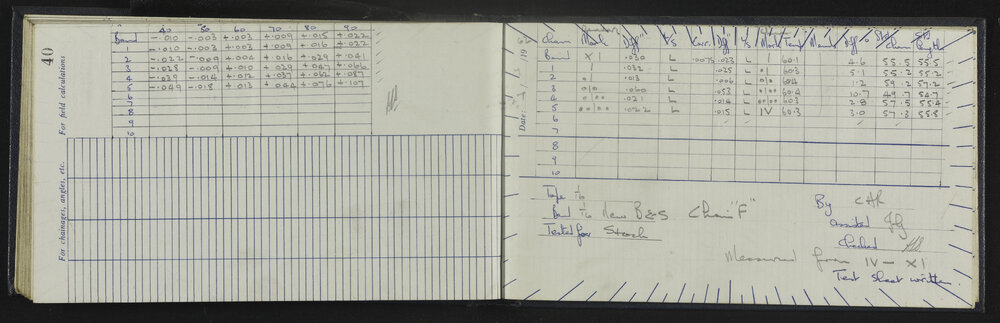 40
For field calculations
40 50 60 70 80 90
Band -.010 -.003 +.003 +.009 +.015 +.022
1 -.010 -.003 +.003 +.009 +.016 +.022
2 -.022 -.009 +.004 +.016 +.029 +.041
3 -.028 -.009 +.010 +.029 +.047 +.066
4 -.039 -.014 +.012 +.037 +.062 +.087
5 -.049 -.018 +.013 +.044 +.076 +.107
6
7
8
9
10
For chainages, angles, etc.
Date 19
Chain Mark Diff L/S Corr. Diff L/S Mark Temp Diff Std Chain Std Length
Band XI .030 L .0075 .023 L I 60.1 4.6 55.5 55.5
1 I .032 L .025 L 01 60.3 5.1 55.2 55.2
2 01 .013 L .006 L 0/0 60.4 1.2 59.2 57.2
3 0/0 .060 L .053 L 0/00 60.4 10.7 49.7 54.7
4 0/00 .021 L .014 L 00/00 60.3 2.8 57.5 55.4
5 00/00 .022 L .015 L IV 60.3 3.0 57.3 55.8
6
7
8
9
10
Tape 1/16
Band 1/16 New B&S Chain "F"
Tested for Stock
By CHR
assisted
Checked
Measured from IV — XI
Test sheet written